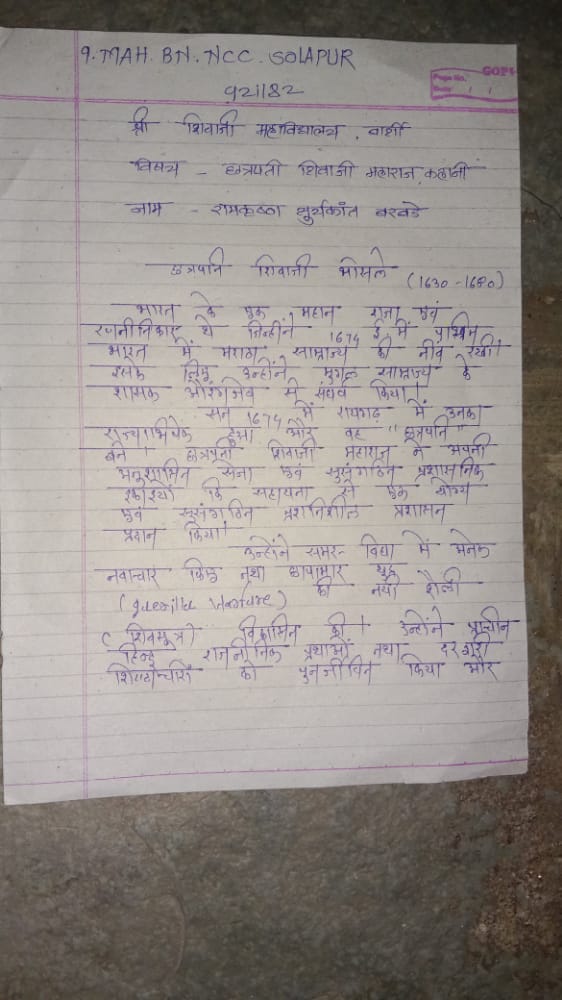 9. MAH. BN. NCC. SOLAPUR
921182
COPY
Page No.
Date / /
श्री शिवाजी महाविद्यालय, बार्शी
विषय - छत्रपती शिवाजी महाराज कहानी
नाम - रामकृष्णा सुर्यकांत बरबडे
छत्रपति शिवाजी भोसले (1630 -1680)
भारत के एक महान राजा एवं
रणनीतिकार थे जिन्होंने 1674 ई में पश्चिम
भारत में मराठा साम्राज्य की नीव रखी।
इसके लिए उन्होंने मुगल साम्राज्य के
शासक औरंगजेब से संघर्ष किया।
सन 1674 में रायगढ़ में उनका
राज्याभिषेक हुआ और वह "छत्रपति"
बने। छत्रपती शिवाजी महाराज ने अपनी
अनुशासित सेना एवं सुसंगठित प्रशासनिक
इकाइयों कि सहायता से एक योग्य
एवं सुसंगठित प्रगतिशील प्रशासन
प्रदान किया।
उन्होंने समर-विद्या में अनेक
नवाचार किए तथा छापामार युद्ध
(guerilla Warfare) की नयी शैली
(शिवसूत्र) विकसित की। उन्होंने प्राचीन
हिन्दू राजनीतिक प्रथाओं तथा दरबारी
शिष्टाचारों को पुनर्जीवित किया और